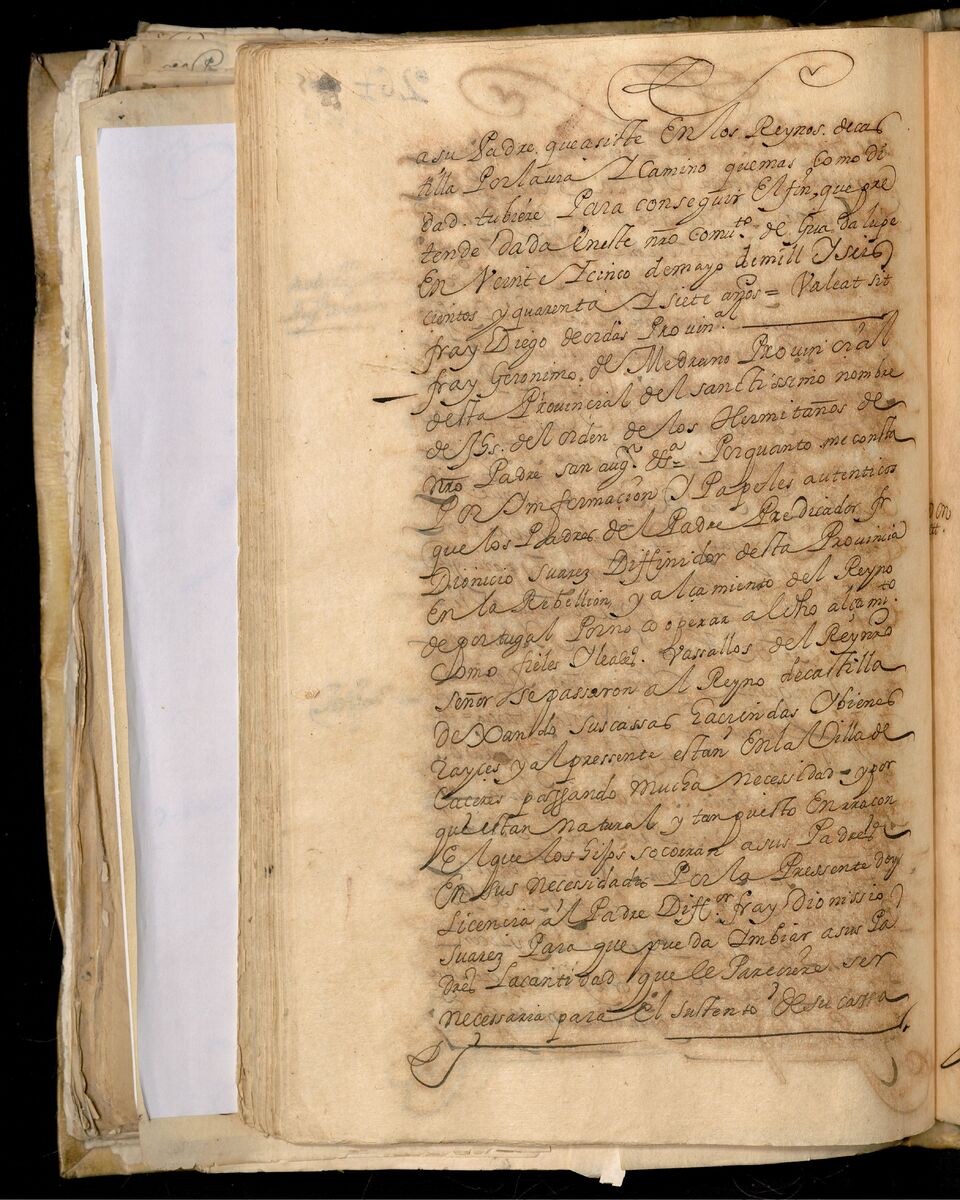 a su Padre que asiste En los Reynos de cas
tilla Por la via Y Camino que mas Como di
dad tubiere Para conseguir El fin, que pre
tende dada En este nro Comuto. de Guadalupe
En Veinte Y cinco de mayo de mill Y seis
cientos y quarenta Y siete años = Valeat sit
fray Diego de ordas Provin.al
fray Geronimo de Medrano Provincial
desta Provincial del sanctissimo nombre
de Jhs. del orden de los Hermitaños de
nro Padre san augn. &a = Porquanto me consta
Por Ynformacion Y Papeles autenticos
que los Padres del Padre Predicador fr
Dionicio suarez Diffinidor desta Provincia
En la Rebellion, y alçamiento del Reyno
de portugal Por no cooperar al dho alçamito.
Como fieles Y leales. Vassallos del Rey nro
señor se passaron al Reyno de castilla
Dexando sus cassas haciendas Y bienes
rayces y al pressente estan En la Villa de
Caceres passando mucha necessidad y por
que es tan natural y tan puesto En rraçon
El que los hijos socorran a sus Padres
En sus necessidades Por la Pressente doy
Licencia al Padre Diffor. fray Dionissio
suarez Para que pueda Ymbiar a sus Pa
dres La cantidad que le Pareciere ser
necessaria para el sustento de su cassa